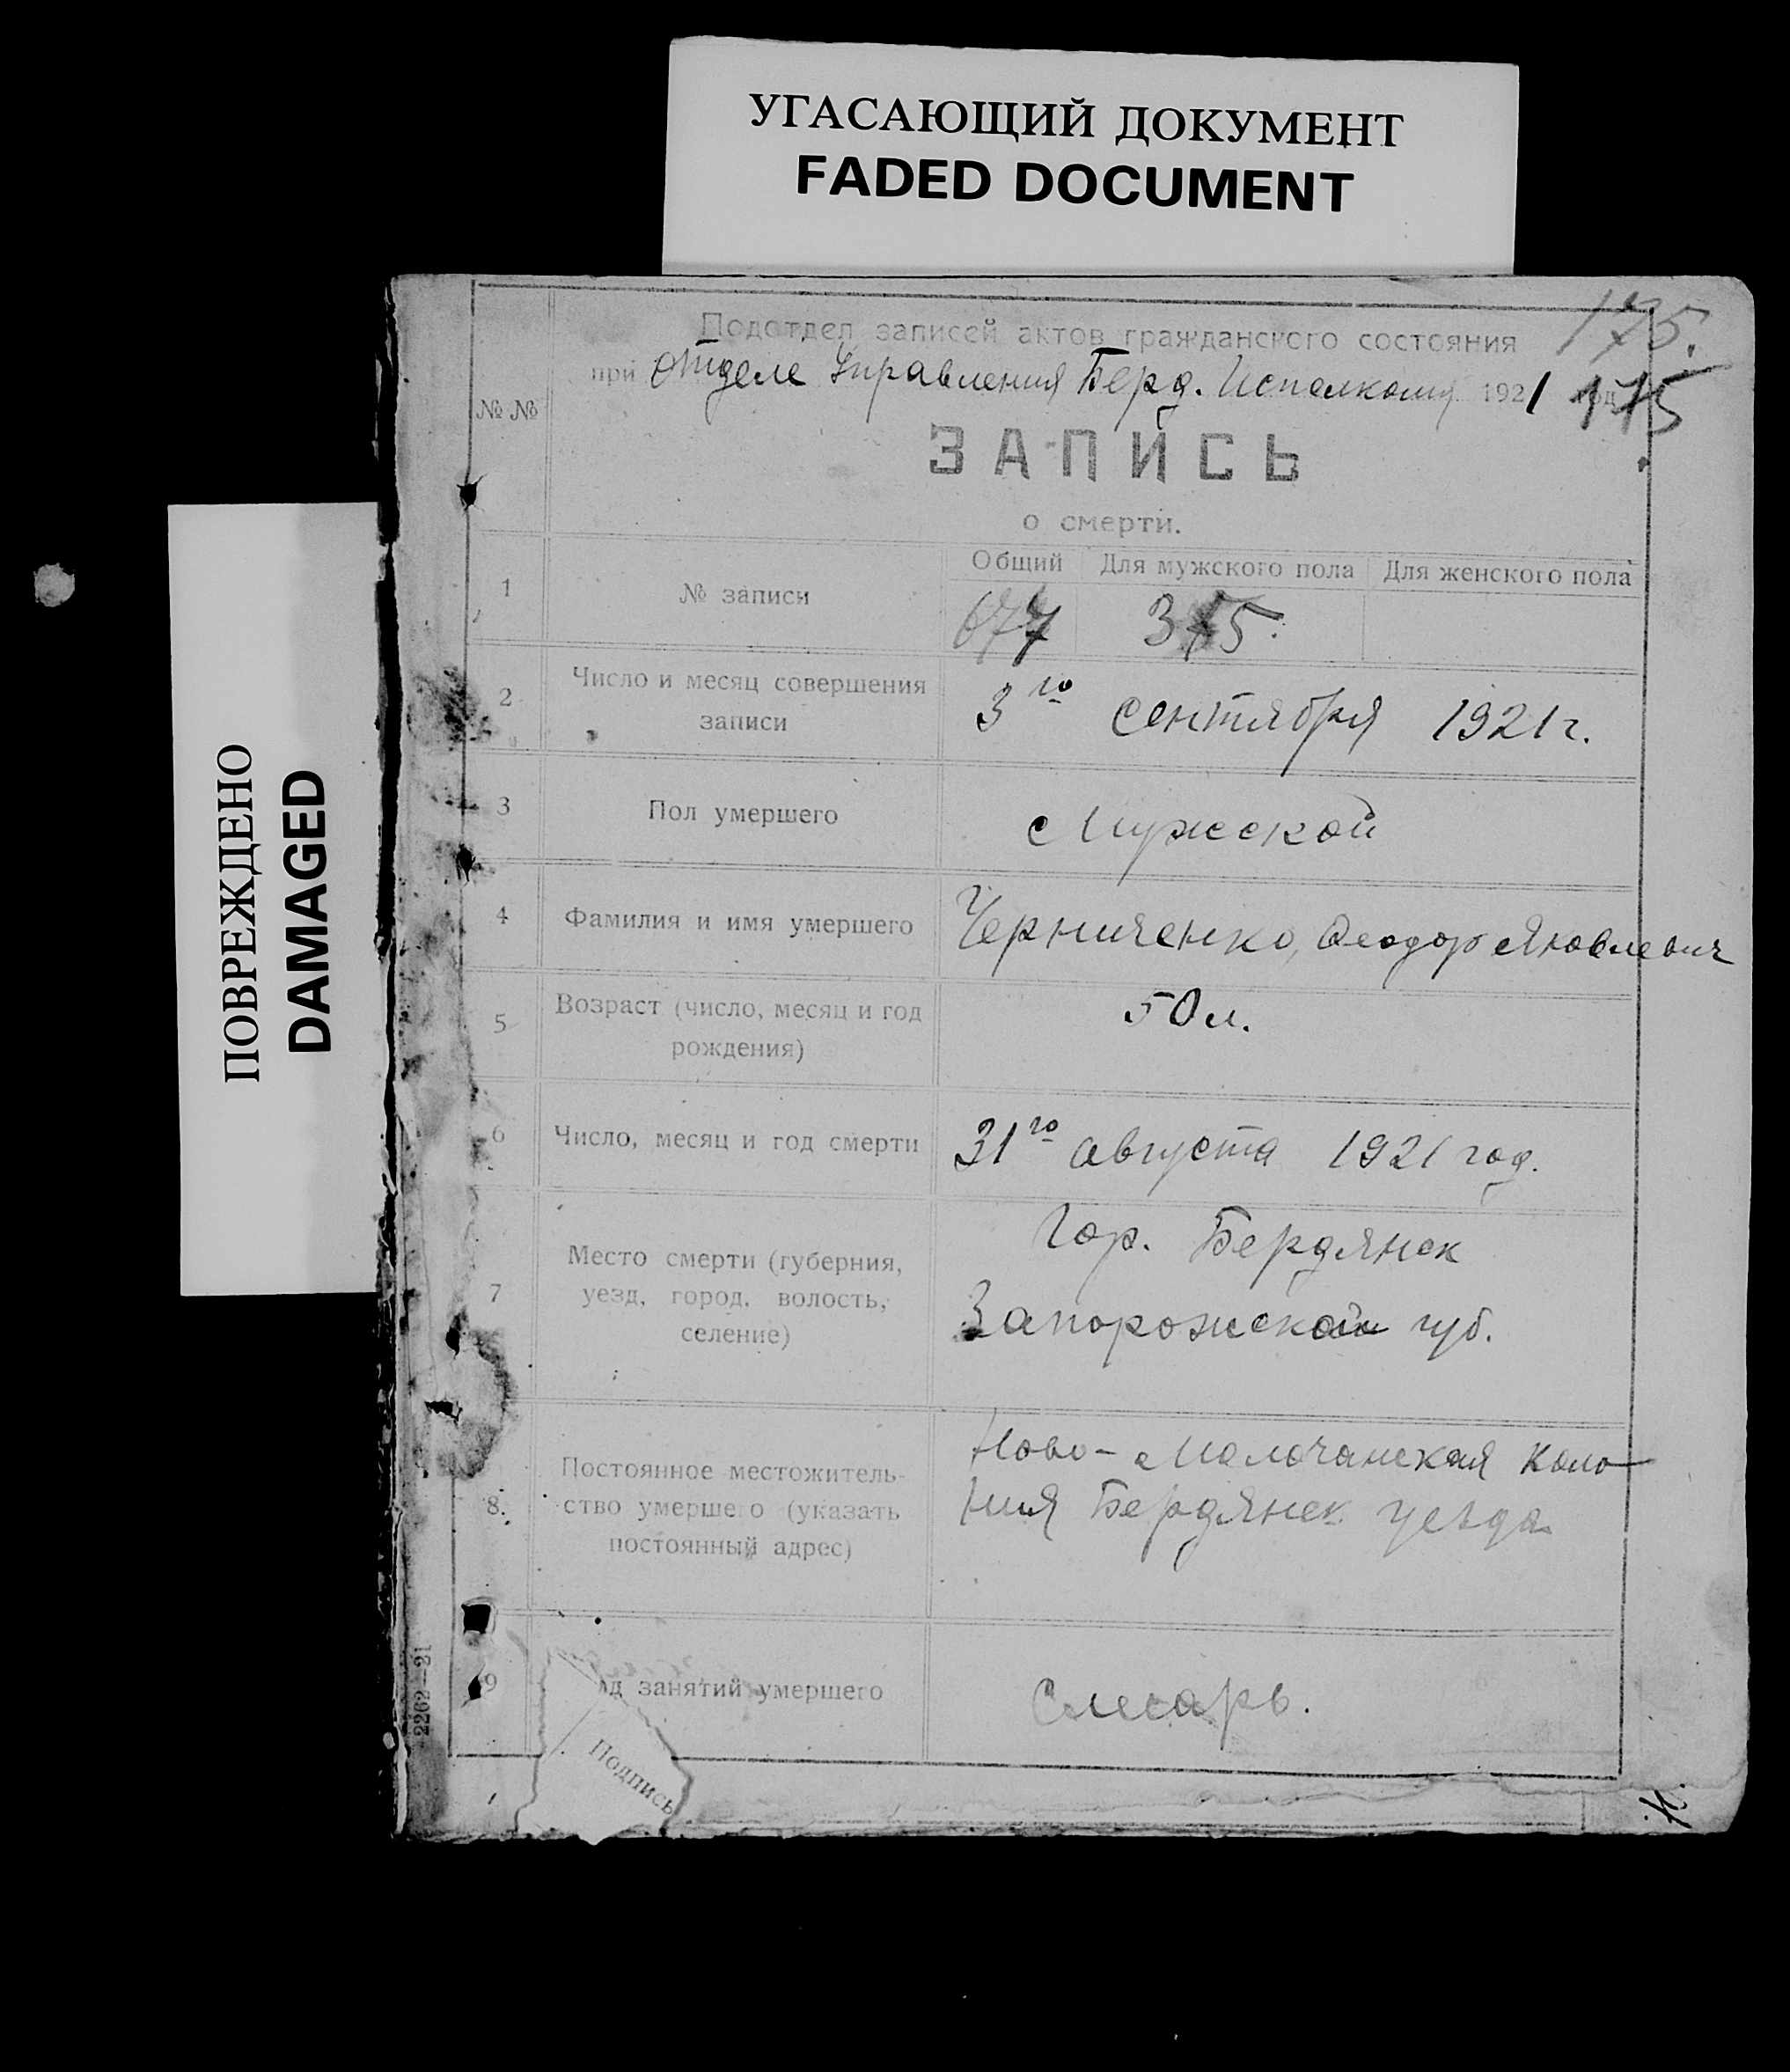 УГАСАЮЩИЙ ДОКУМЕНТ
FADED DOCUMENT
ПОВРЕЖДЕНО
DAMAGED
175.
Подотдел записей актов гражданского состояния
при Отделе Управления Берд. Исполкома 1921 год
175
№ №
ЗАПИСЬ
о смерти.
Общий Для мужского пола Для женского пола
1 № записи 677 375.
2 Число и месяц совершения записи 3го сентября 1921 г.
3 Пол умершего Мужской
4 Фамилия и имя умершего Черниченко, Феодор Яковлевич
5 Возраст (число, месяц и год рождения) 50 л.
6 Число, месяц и год смерти 31го августа 1921 год.
7 Место смерти (губерния, уезд, город, волость, селение) Гор. Бердянск
Запорожской губ.
8. Постоянное местожитель-
ство умершего (указать
постоянный адрес) Ново-Молочанская коло-
ния Бердянск. уезда
9 од занятий умершего Слесарь.
Подпись
2262—21